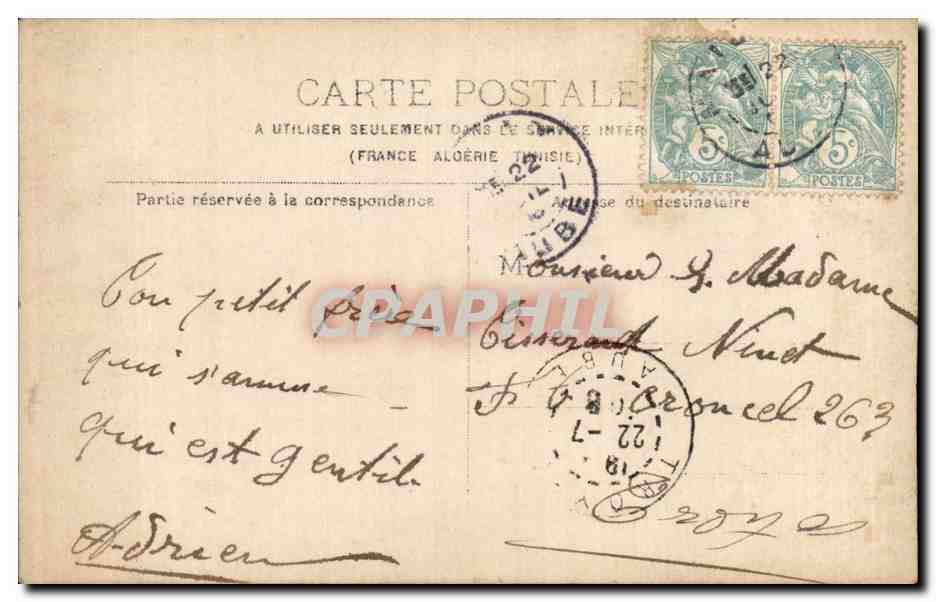 CARTE POSTALE
A UTILISER SEULEMENT DANS LE SERVICE INTER
(FRANCE ALGÉRIE TUNISIE)
5c 5c
POSTES POSTES
22
AU
22
UBE
Partie réservée à la correspondance
Adresse du destinataire
Ton petit frère
qui s'amuse
qui est gentil
Adrien
Monsieur & Madame
Tisserand Ninet
Croncel 263
Troyes
AUBE
22 -7
19
CPAPHIL